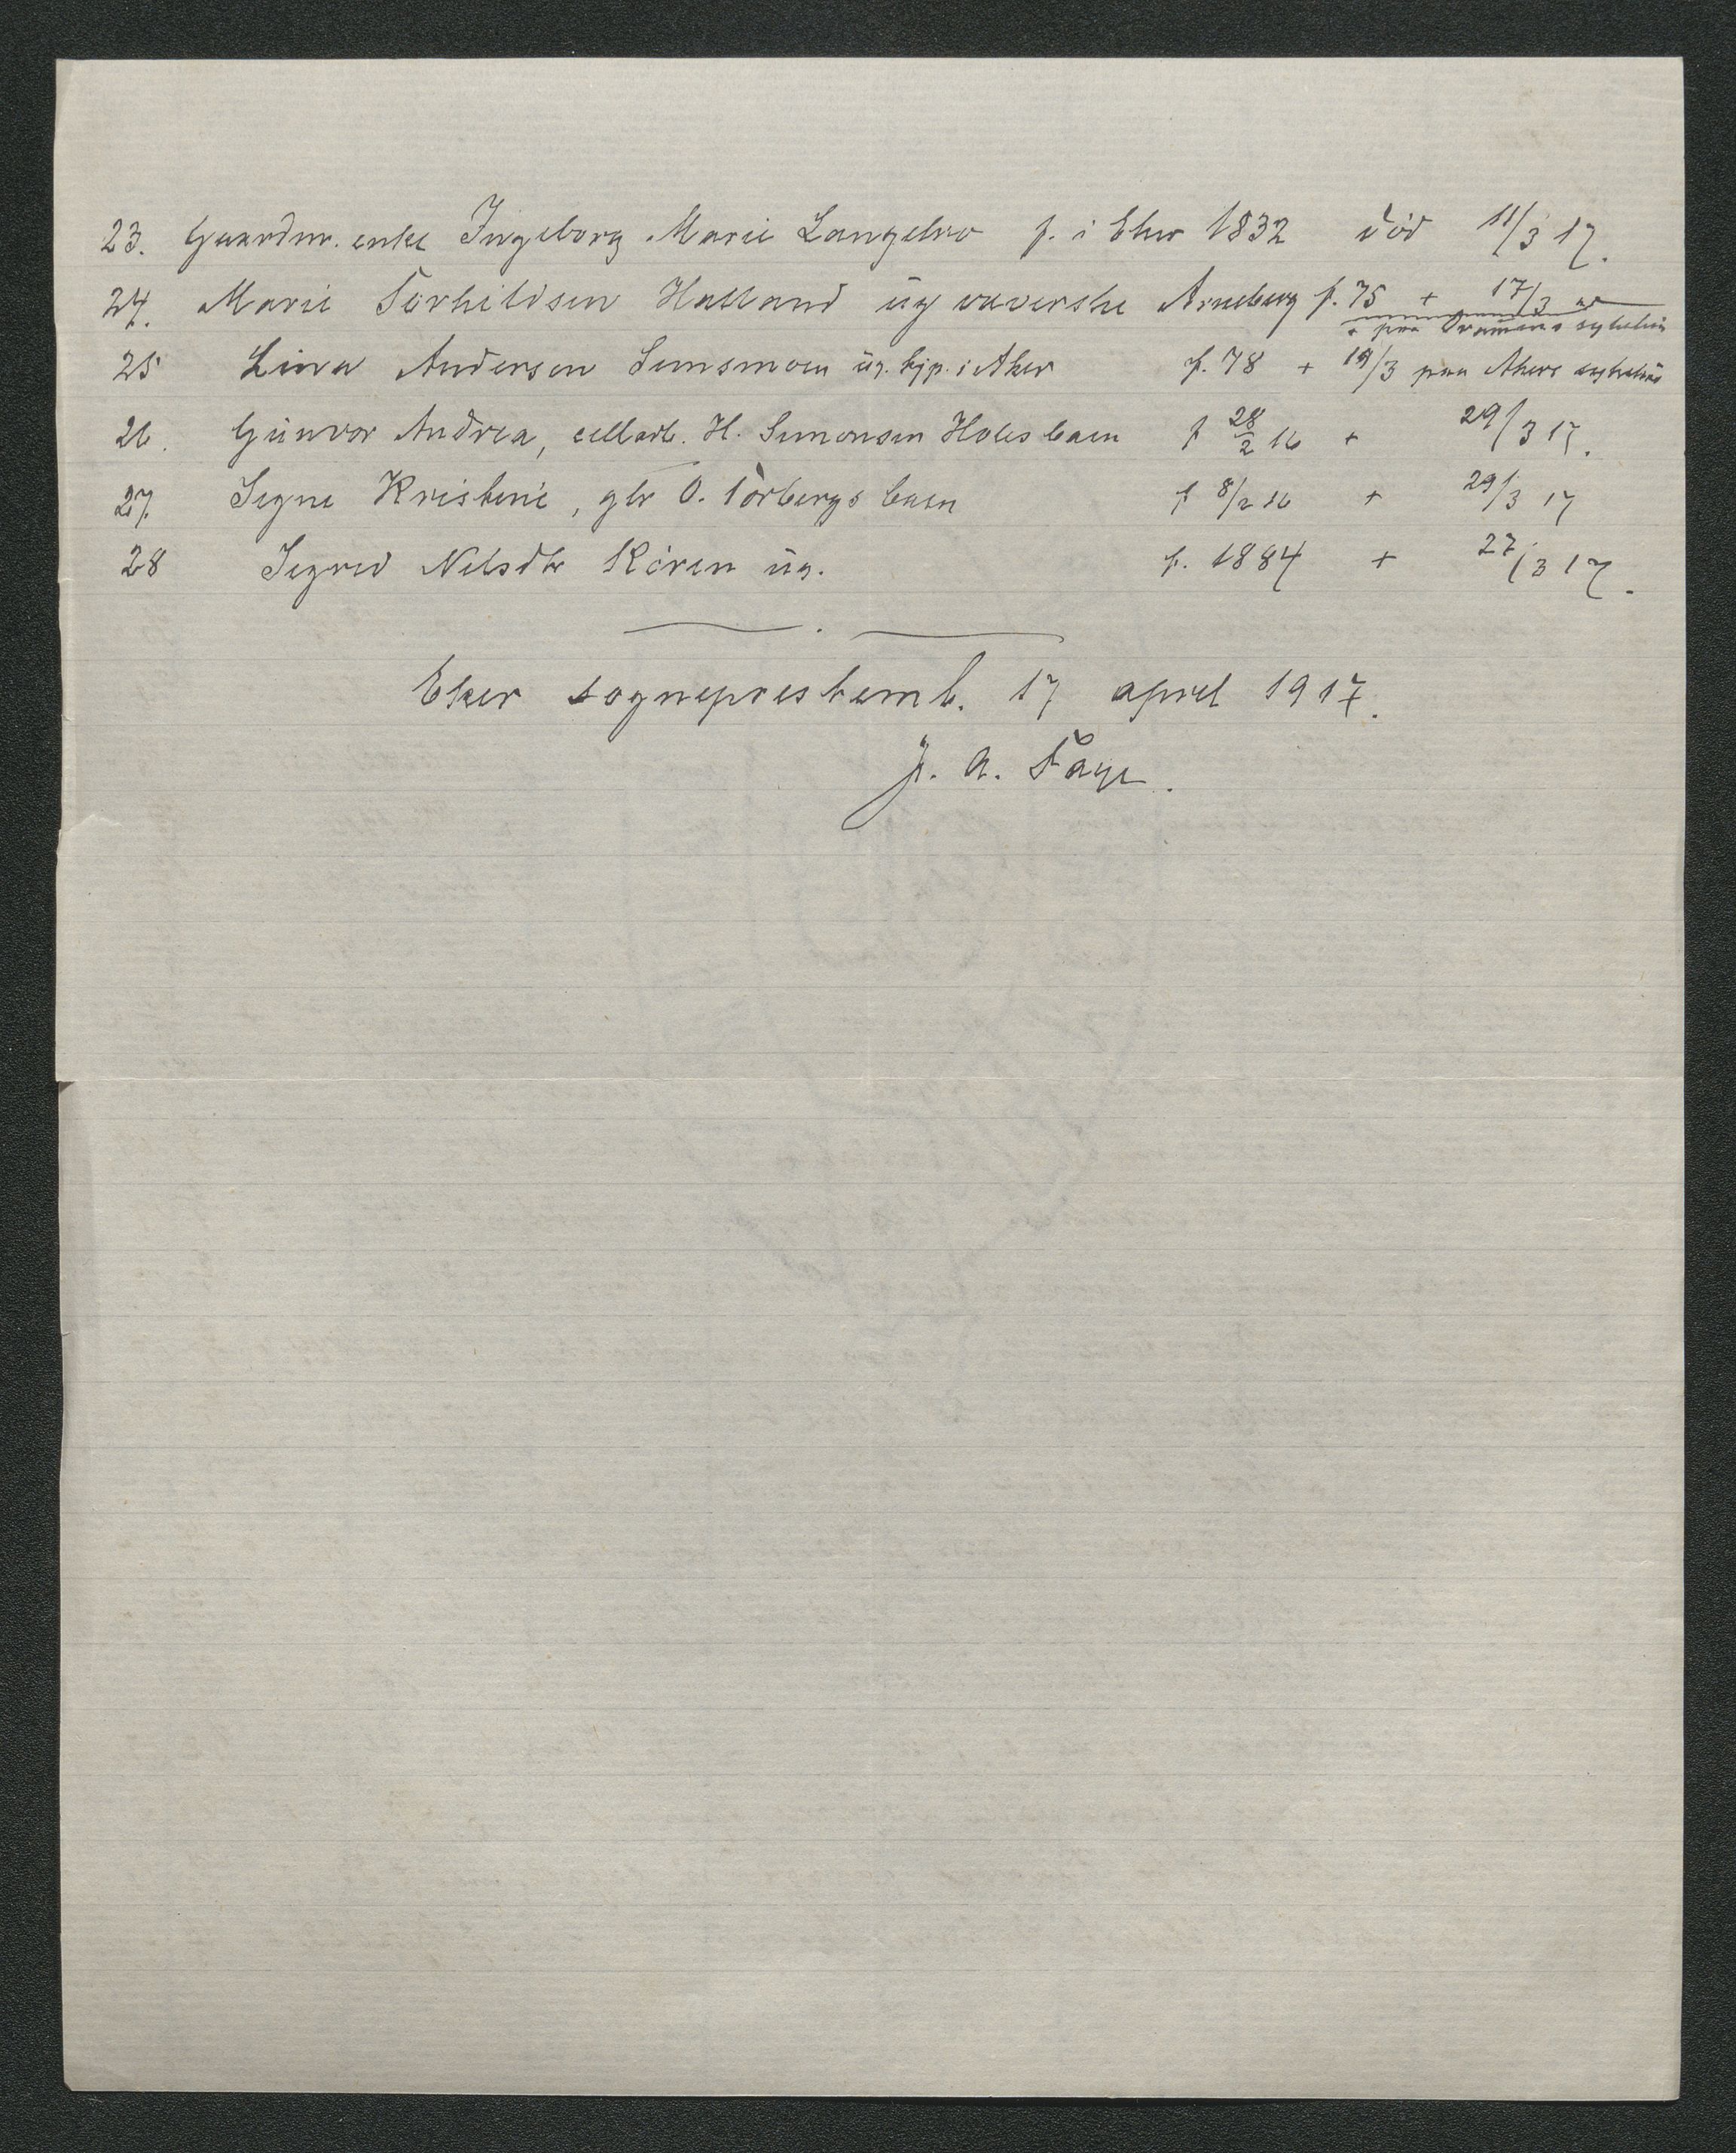 23. Gaardmr. enke Ingeborg Marie Langebro f. i Eker 1832 död 11/3 17.
24. Marie Torkildsen Hatland ug væverske Arneberg f. 75 + 17/3
+ paa Drammens sykehus
25 Lina Andersen Semsmoen ug. hjp. i Aker f. 78 + 19/3 paa Akers sykehus
26. Gunvor Andrea, cellarb. H. Simonsen Holes barn f 28/2 16 + 29/3 17.
27. Signe Kristine, gbr O. Torbergs barn f 8/2 16 + 29/3 17
28 Sigrid Nilsdtr Kören ug. f. 1884 + 27/3 17.
Eker sogneprestemb. 17 april 1917.
J. A. Faye.